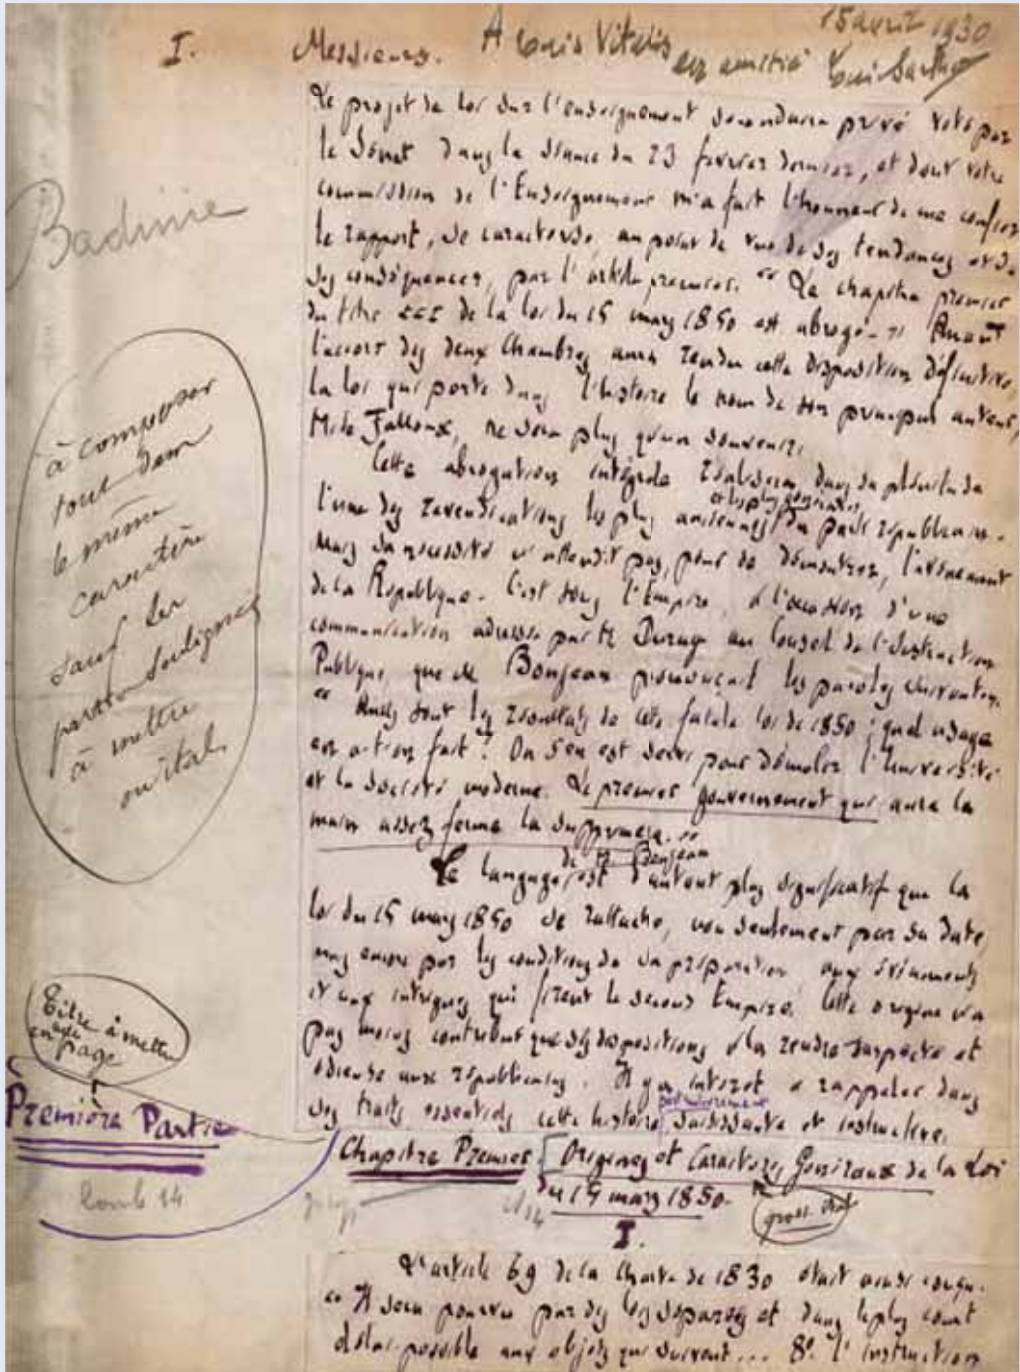 15 avril 1930
A Louis Vitalis
en amitié Louis Barthou
I. Messieurs.
Le projet de loi sur l'enseignement secondaire privé voté par
le Sénat dans la séance du 23 février dernier, et dont votre
commission de l'Enseignement m'a fait l'honneur de me confier
le rapport, se caractérise, au point de vue de ses tendances et de
ses conséquences, par l'article premier. "Le chapitre premier
du titre III de la loi du 15 mars 1850 est abrogé." Quand
l'accord des deux Chambres aura rendu cette disposition définitive,
la loi qui porte dans l'histoire le nom de son principal auteur,
M. de Falloux, ne sera plus qu'un souvenir.
Cette abrogation intégrale réalisera dans sa plénitude
l'une des revendications les plus anciennes et les plus générales du parti républicain.
Mais sa nécessité n'attendit pas, pour se démontrer, l'avènement
de la République. C'est sous l'Empire, à l'occasion d'une
communication adressée par M. Duruy au Conseil de l'Instruction
Publique que M. Bonjean prononçait les paroles suivantes.
"Quels sont les résultats de cette fatale loi de 1850 ; quel usage
en a-t-on fait ? On s'en est servi pour démolir l'Université
et la société moderne. Le premier gouvernement qui aura la
main assez ferme la supprimera."
Le langage de M. Bonjean est d'autant plus significatif que la
loi du 15 mars 1850 se rattache, non seulement par sa date,
mais encore par les conditions de sa préparation, aux événements
et aux intrigues qui firent le second Empire. Cette origine n'a
pas moins contribué que ses dispositions à la rendre suspecte et
odieuse aux républicains. Il y a intérêt à rappeler dans
ses traits essentiels cette histoire saisissante et instructive.
Badinie
à composer
tout dans
le même
caractère
sauf les
parties soulignées
à mettre
en ital.
Titre à mettre
en page
Première Partie
Chapitre Premier Origines et Caractères Généraux de la Loi
du 15 mars 1850.
I.
L'article 69 de la Charte de 1830 était ainsi conçu.
"Il sera pourvu par des lois séparées et dans le plus court
délai possible aux objets qui suivent... 8° l'instruction